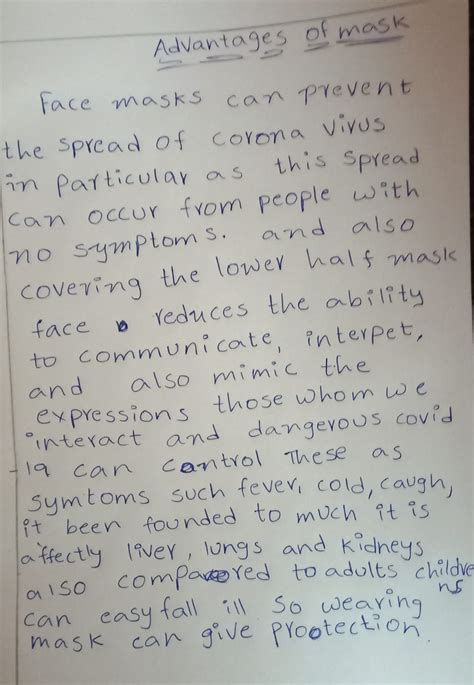 Advantages of mask
Face masks can prevent
the spread of corona virus
in particular as this spread
can occur from people with
no symptoms. and also
covering the lower half mask
face reduces the ability
to communicate, interpet,
and also mimic the
expressions those whom we
interact and dangerous covid
-19 can cantrol These as
symtoms such fever, cold, caugh,
it been founded to much it is
affectly liver, lungs and kidneys
also compared to adults childre
ns
can easy fall ill so wearing
mask can give prootection.